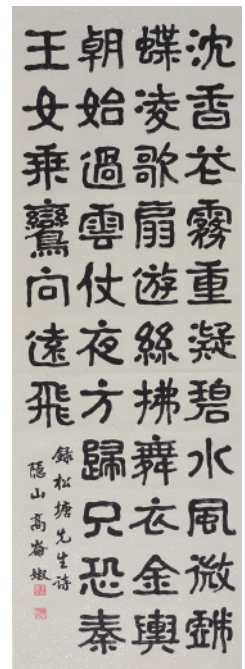 沈香花霧重凝碧水風微蛺
蝶凌歌扇遊絲拂舞衣金輿
朝始過雲仗夜方歸只恐秦
王女乗鸞向遠飛
錄松塘先生詩
隱山高崙